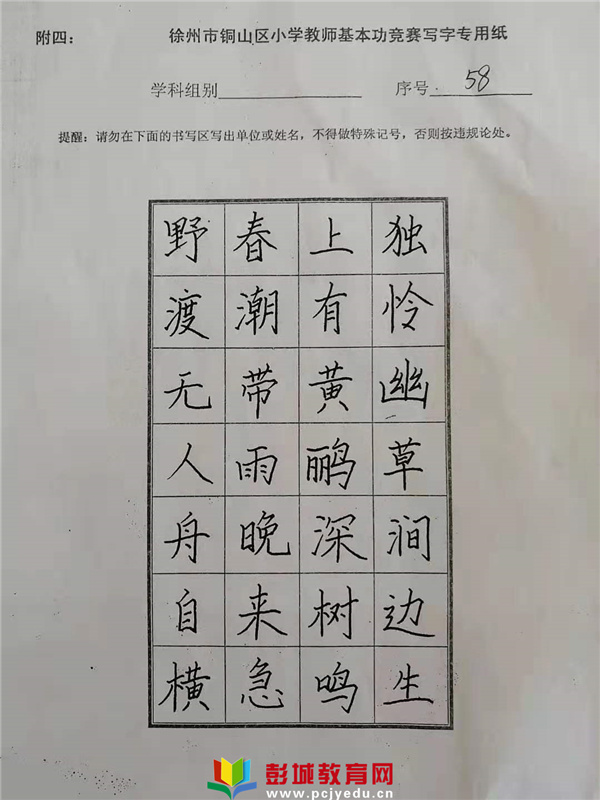 附四：
徐州市铜山区小学教师基本功竞赛写字专用纸
学科组别
序号 58
提醒：请勿在下面的书写区写出单位或姓名，不得做特殊记号，否则按违规论处。
独怜幽草涧边生
上有黄鹂深树鸣
春潮带雨晚来急
野渡无人舟自横
彭城教育网
www.pcjyedu.cn